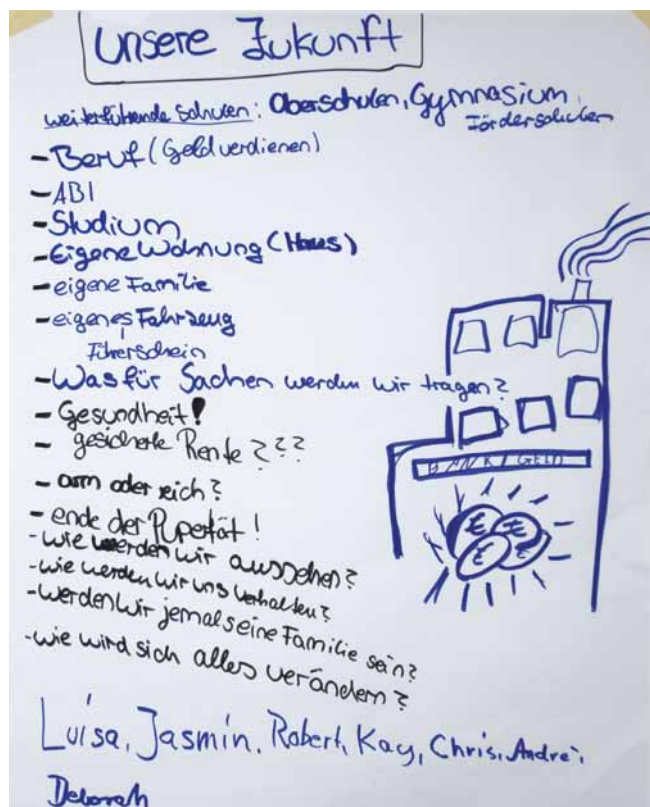 Unsere Zukunft
weiterführende Schulen: Oberschulen, Gymnasium,
Förderschulen
- Beruf (Geld verdienen)
- ABI
- Studium
- Eigene Wohnung (Haus)
- eigene Familie
- eigenes Fahrzeug
Führerschein
- Was für Sachen werden wir tragen?
- Gesundheit!
- gesicherte Rente???
- arm oder reich?
- ende der Pupertät!
- wie werden wir aussehen?
- wie werden wir uns verhalten?
- werden wir jemals eine Familie sein?
- wie wird sich alles verändern?
BANK / GELD
€ € €
Luisa, Jasmin, Robert, Kay, Chris, Andrei,
Deborah